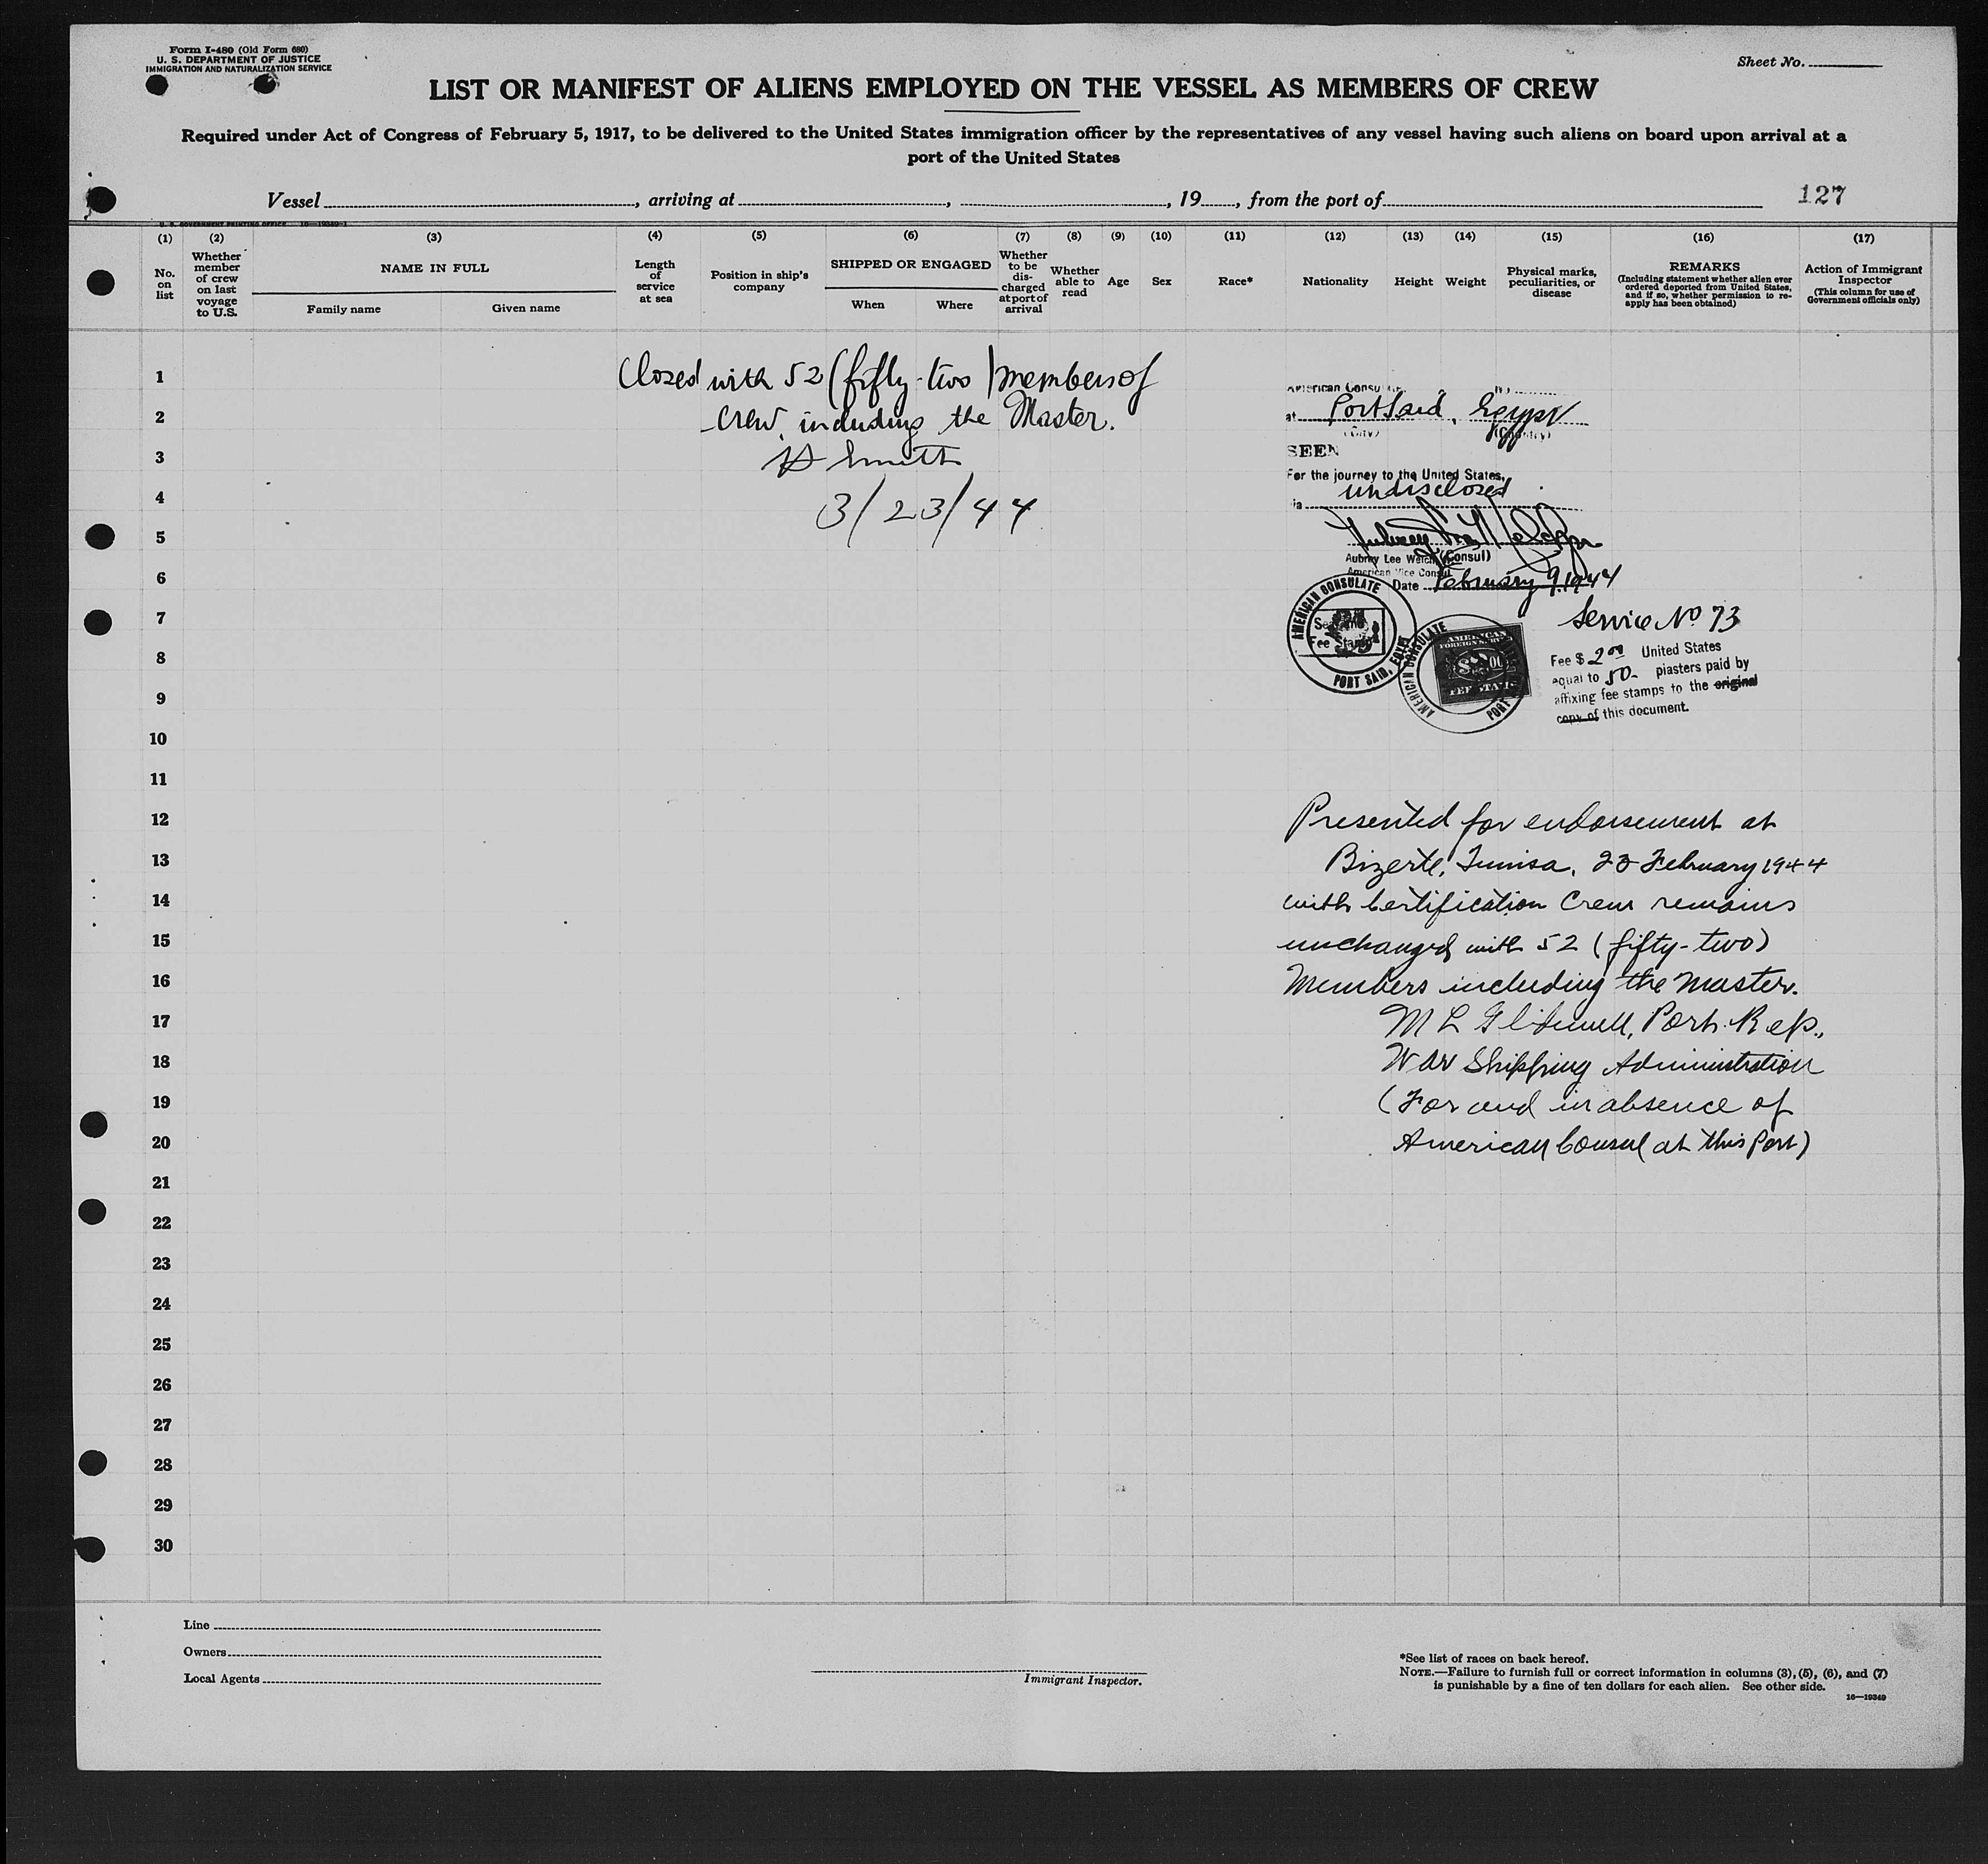 Form I-480 (Old Form 680)
U. S. DEPARTMENT OF JUSTICE
IMMIGRATION AND NATURALIZATION SERVICE
Sheet No.
LIST OR MANIFEST OF ALIENS EMPLOYED ON THE VESSEL AS MEMBERS OF CREW
Required under Act of Congress of February 5, 1917, to be delivered to the United States immigration officer by the representatives of any vessel having such aliens on board upon arrival at a
port of the United States
Vessel , arriving at , , 19 , from the port of 127
U. S. GOVERNMENT PRINTING OFFICE 16—19349-1
(1) (2) (3) (4) (5) (6) (7) (8) (9) (10) (11) (12) (13) (14) (15) (16) (17)
No. on list
Whether member of crew on last voyage to U.S.
NAME IN FULL
Family name
Given name
Length of service at sea
Position in ship's company
SHIPPED OR ENGAGED
When
Where
Whether to be dis-charged at port of arrival
Whether able to read
Age
Sex
Race*
Nationality
Height
Weight
Physical marks, peculiarities, or disease
REMARKS
(Including statement whether alien ever ordered deported from United States, and if so, whether permission to re-apply has been obtained)
Action of Immigrant Inspector
(This column for use of Government officials only)
1
2
3
4
5
6
7
8
9
10
11
12
13
14
15
16
17
18
19
20
21
22
23
24
25
26
27
28
29
30
Closed with 52 (fifty-two) members of
crew, including the Master.
Smith
3/23/44
American Consulate
at Port Said, Egypt
(City) (Country)
SEEN
For the journey to the United States,
via undisclosed
Aubrey Lee Welch (Consul)
American Vice Consul
Date February 9, 1944
AMERICAN CONSULATE
PORT SAID, EGYPT
Fee Stamp
AMERICAN CONSULATE
PORT
AMERICAN
FOREIGN SERVICE
FEE STAMP
Service No 73
Fee $ 2.00 United States
equal to 50- piasters paid by
affixing fee stamps to the original
copy of this document.
Presented for endorsement at
Bizerte, Tunisa, 23 February 1944
with Certification Crew remains
unchanged with 52 (fifty-two)
Members including the Master.
M L Port. Rep.,
War Shipping Administration
(For and in absence of
American Consul at this Port)
Line
Owners
Local Agents
Immigrant Inspector.
*See list of races on back hereof.
NOTE.—Failure to furnish full or correct information in columns (3), (5), (6), and (7)
is punishable by a fine of ten dollars for each alien. See other side.
16—19349